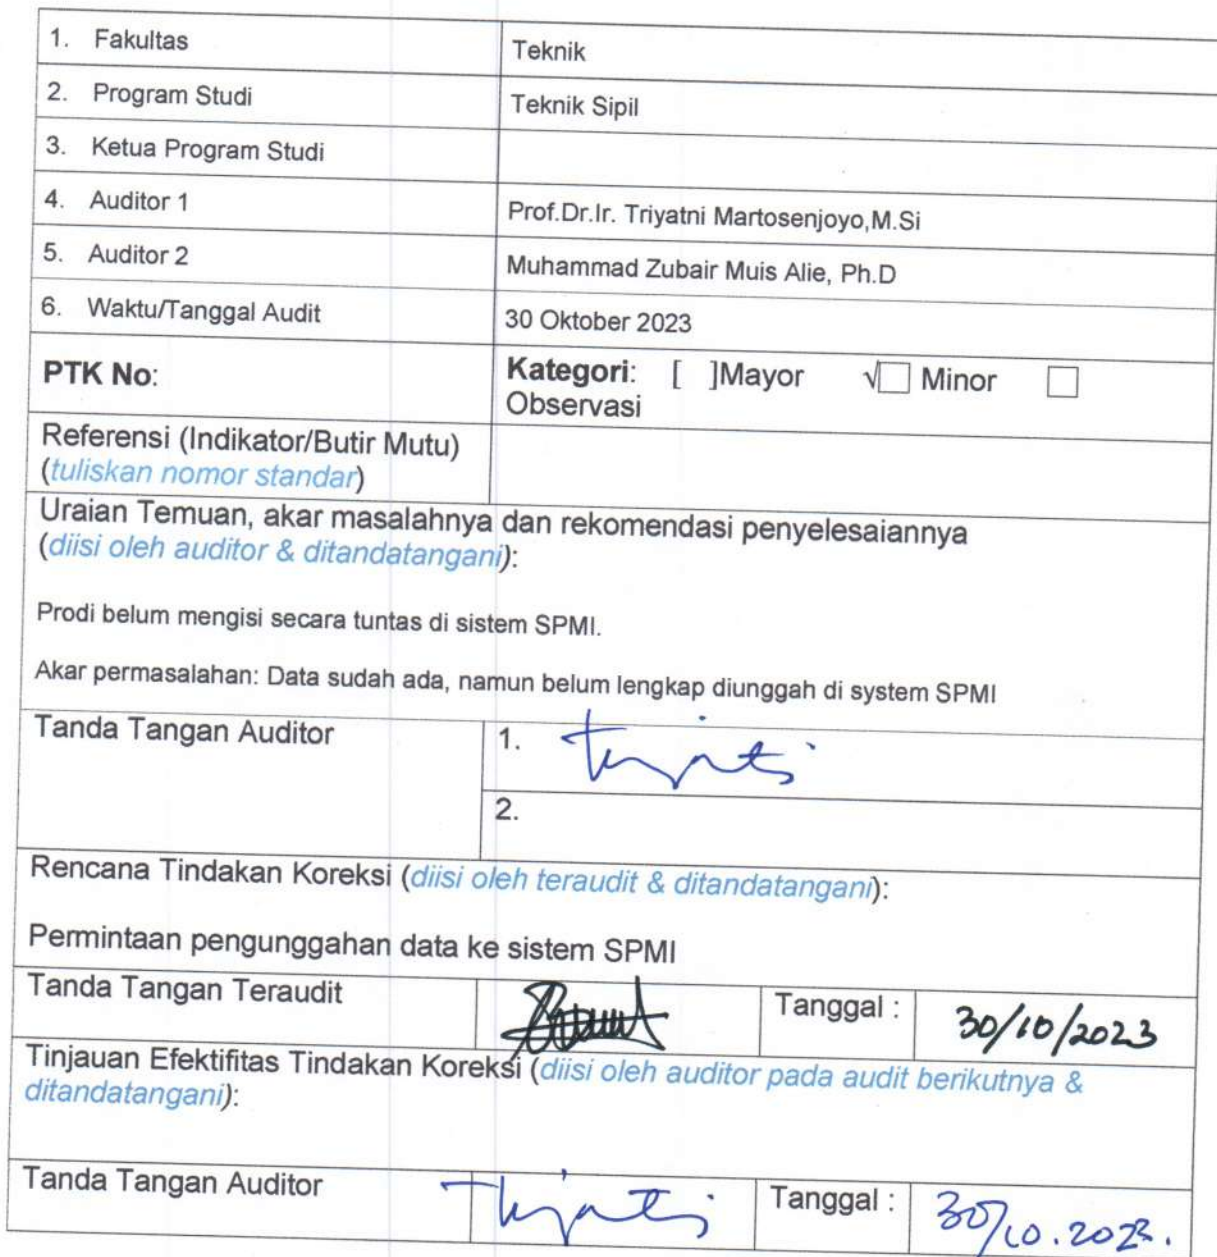 1. Fakultas Teknik
2. Program Studi Teknik Sipil
3. Ketua Program Studi
4. Auditor 1 Prof.Dr.Ir. Triyatni Martosenjoyo,M.Si
5. Auditor 2 Muhammad Zubair Muis Alie, Ph.D
6. Waktu/Tanggal Audit 30 Oktober 2023
PTK No: Kategori: [ ]Mayor √☐ Minor ☐
Observasi
Referensi (Indikator/Butir Mutu)
(tuliskan nomor standar)
Uraian Temuan, akar masalahnya dan rekomendasi penyelesaiannya
(diisi oleh auditor & ditandatangani):
Prodi belum mengisi secara tuntas di sistem SPMI.
Akar permasalahan: Data sudah ada, namun belum lengkap diunggah di system SPMI
Tanda Tangan Auditor 1.
2.
Rencana Tindakan Koreksi (diisi oleh teraudit & ditandatangani):
Permintaan pengunggahan data ke sistem SPMI
Tanda Tangan Teraudit Tanggal : 30/10/2023
Tinjauan Efektifitas Tindakan Koreksi (diisi oleh auditor pada audit berikutnya &
ditandatangani):
Tanda Tangan Auditor Tanggal : 30/10.2023.